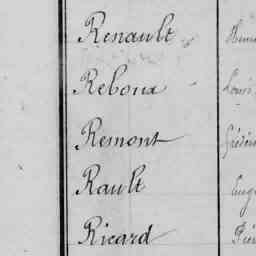 Renault
Reboux
Remont
Rault
Ricard